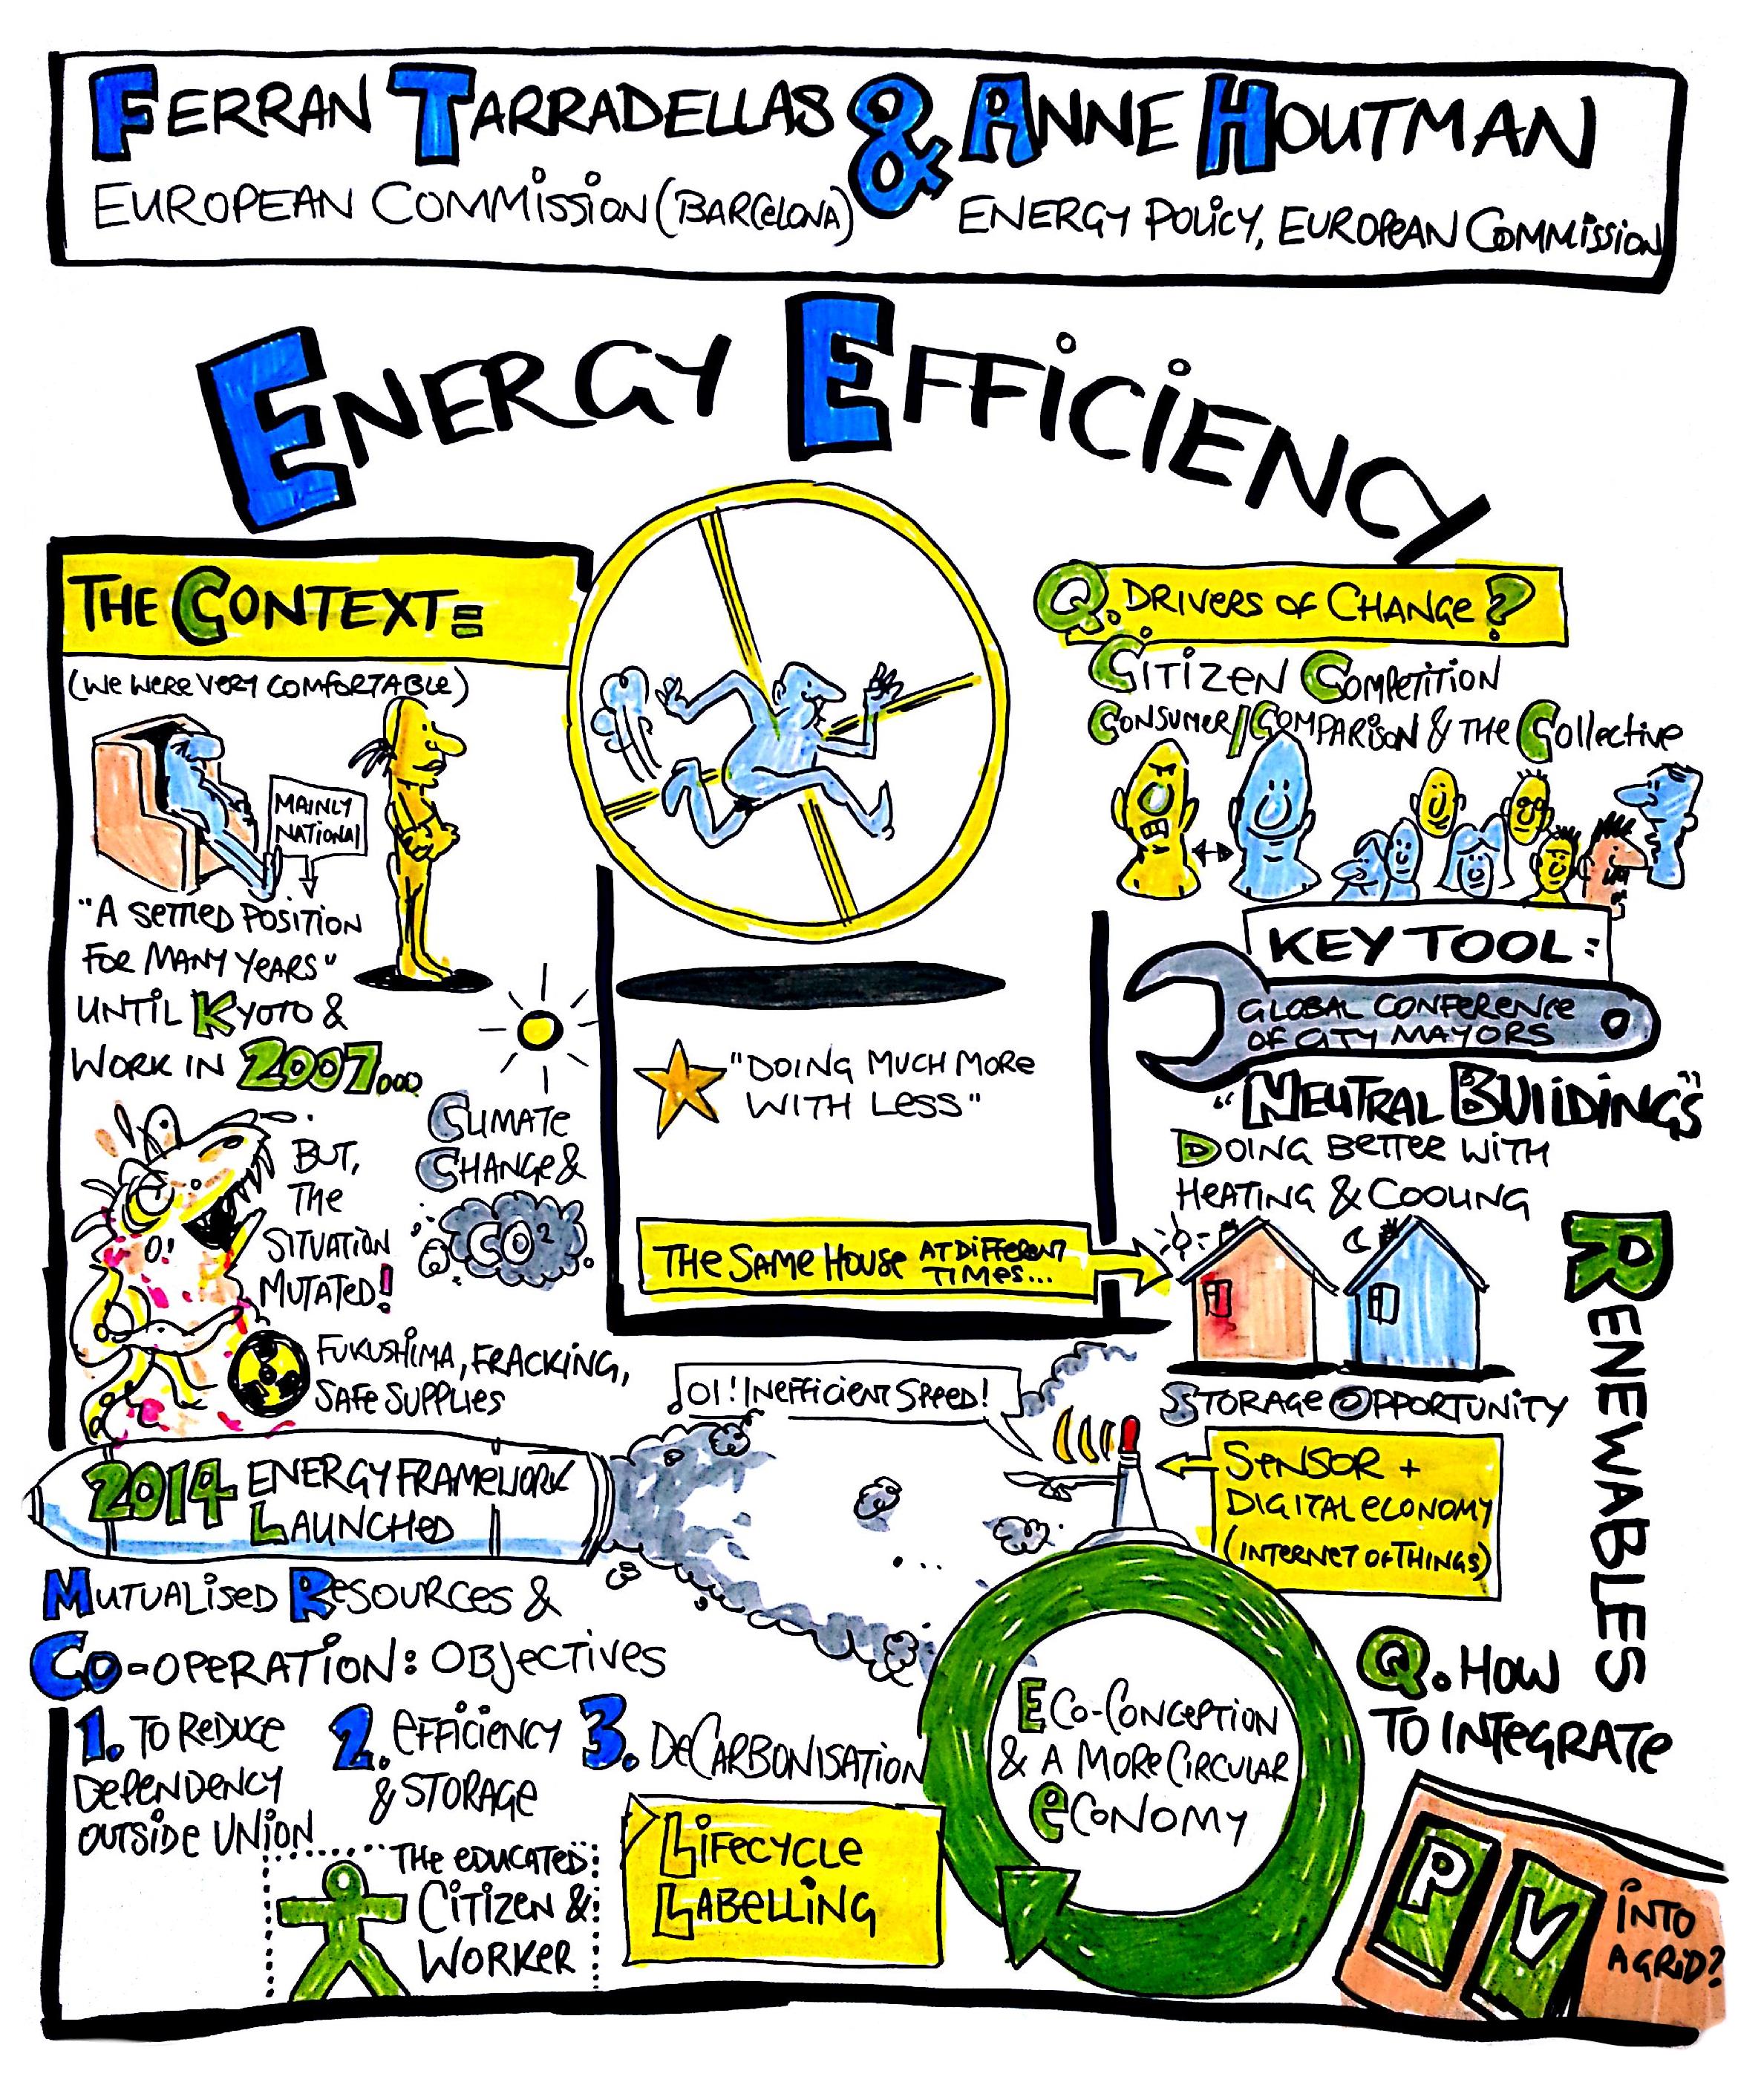 FERRAN TARRADELLAS & ANNE HOUTMAN
EUROPEAN COMMISSION (BARCELONA)
ENERGY POLICY, EUROPEAN COMMISSION
ENERGY EFFICIENCY
THE CONTEXT=
(WE WERE VERY COMFORTABLE)
MAINLY
NATIONAL
"A SETTLED POSITION
FOR MANY YEARS"
UNTIL KYOTO &
WORK IN 2007...
BUT,
THE
SITUATION
MUTATED!
CLIMATE
CHANGE &
CO2
FUKUSHIMA, FRACKING,
SAFE SUPPLIES
"DOING MUCH MORE
WITH LESS"
THE SAME HOUSE AT DIFFERENT
TIMES...
Q. DRIVERS OF CHANGE?
CITIZEN COMPETITION
CONSUMER//COMPARISON & THE COLLECTIVE
KEY TOOL:
GLOBAL CONFERENCE
OF CITY MAYORS
"NEUTRAL BUILDINGS"
DOING BETTER WITH
HEATING & COOLING
STORAGE OPPORTUNITY
RENEWABLES
OI! INEFFICIENT SPEED!
SENSOR +
DIGITAL ECONOMY
(INTERNET OF THINGS)
2014 ENERGY FRAMEWORK
LAUNCHED
MUTUALISED RESOURCES &
CO-OPERATION: OBJECTIVES
1. TO REDUCE
DEPENDENCY
OUTSIDE UNION
2. EFFICIENCY
& STORAGE
3. DECARBONISATION
THE EDUCATED
CITIZEN &
WORKER
LIFECYCLE
LABELLING
ECO-CONCEPTION
& A MORE CIRCULAR
ECONOMY
Q. HOW
TO INTEGRATE
PV
INTO
A GRID?